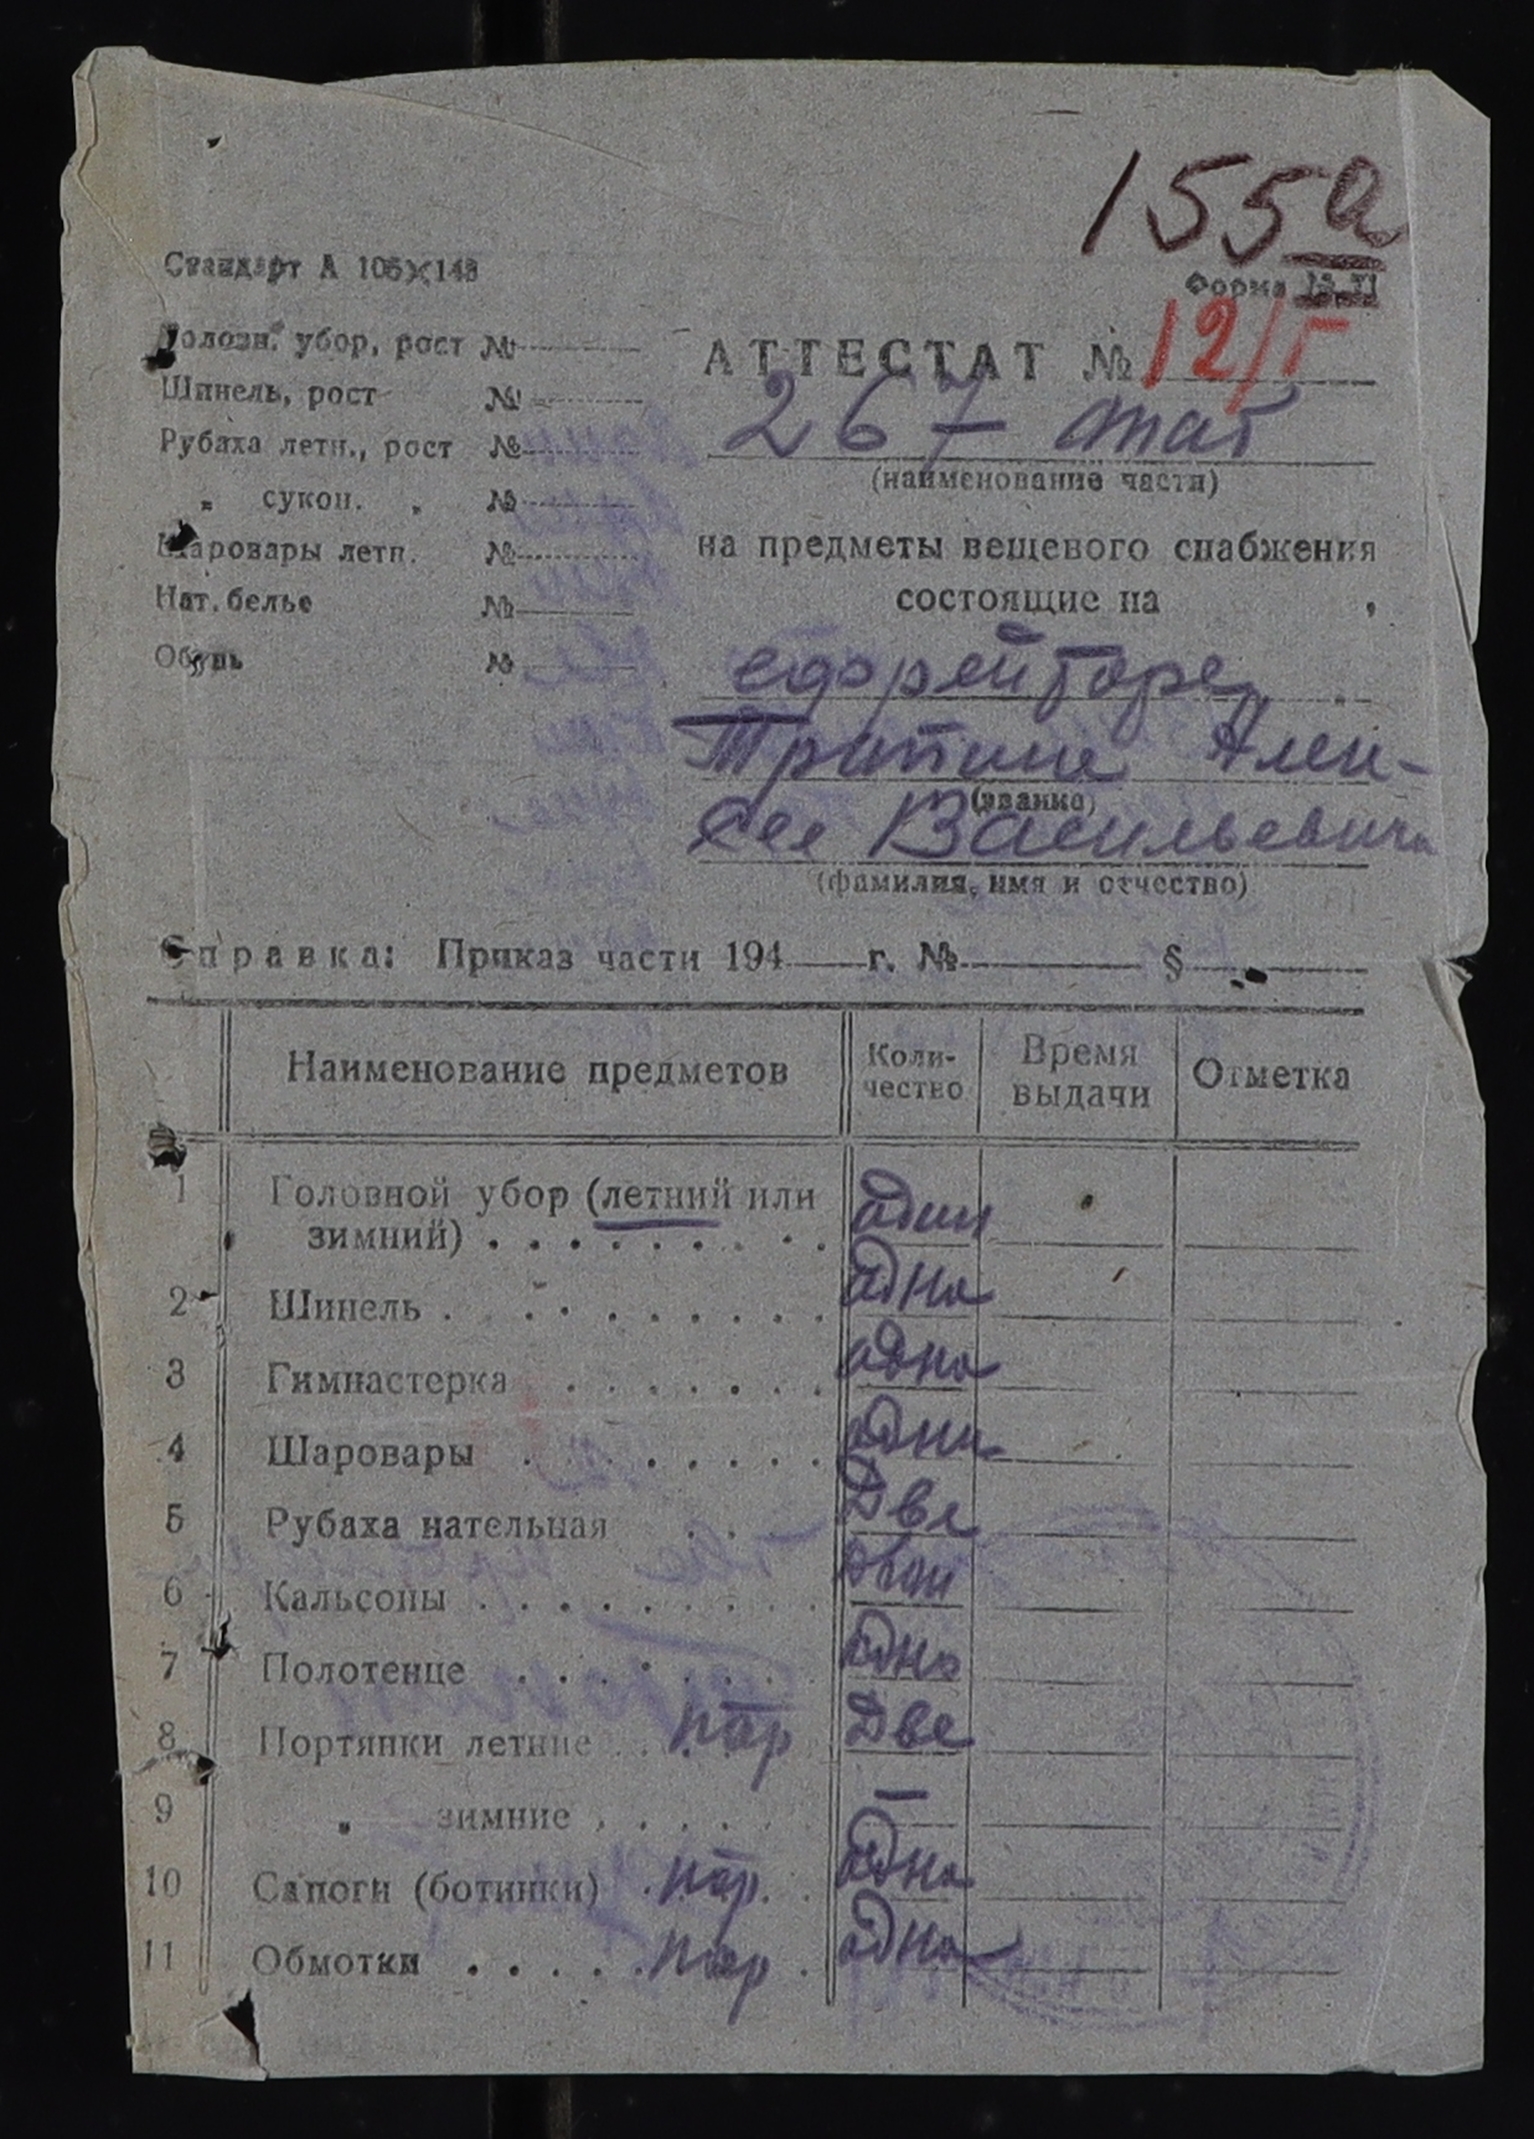 155а
Стандарт А 105×148
Форма
Головн. убор, рост №
Шинель, рост №
Рубаха летн., рост №
„ сукон. „ №
Шаровары летн. №
Нат. белье №
Обувь №
АТТЕСТАТ № 12/Г
267
(наименование части)
на предметы вещевого снабжения
состоящие на
ефрейторе
Алек-
(звание)
сее Васильевиче
(фамилия, имя и отчество)
Справка: Приказ части 194 г. № §
Наименование предметов Коли- Время Отметка
чество выдачи
1 Головной убор (летний или один
зимний)
2 Шинель одна
3 Гимнастерка одна
4 Шаровары одни
5 Рубаха нательная Две
6 Кальсоны
7 Полотенце одно
8 Портянки летние пар Две
9 „ зимние —
10 Сапоги (ботинки) пар. одна
11 Обмотки пар одна